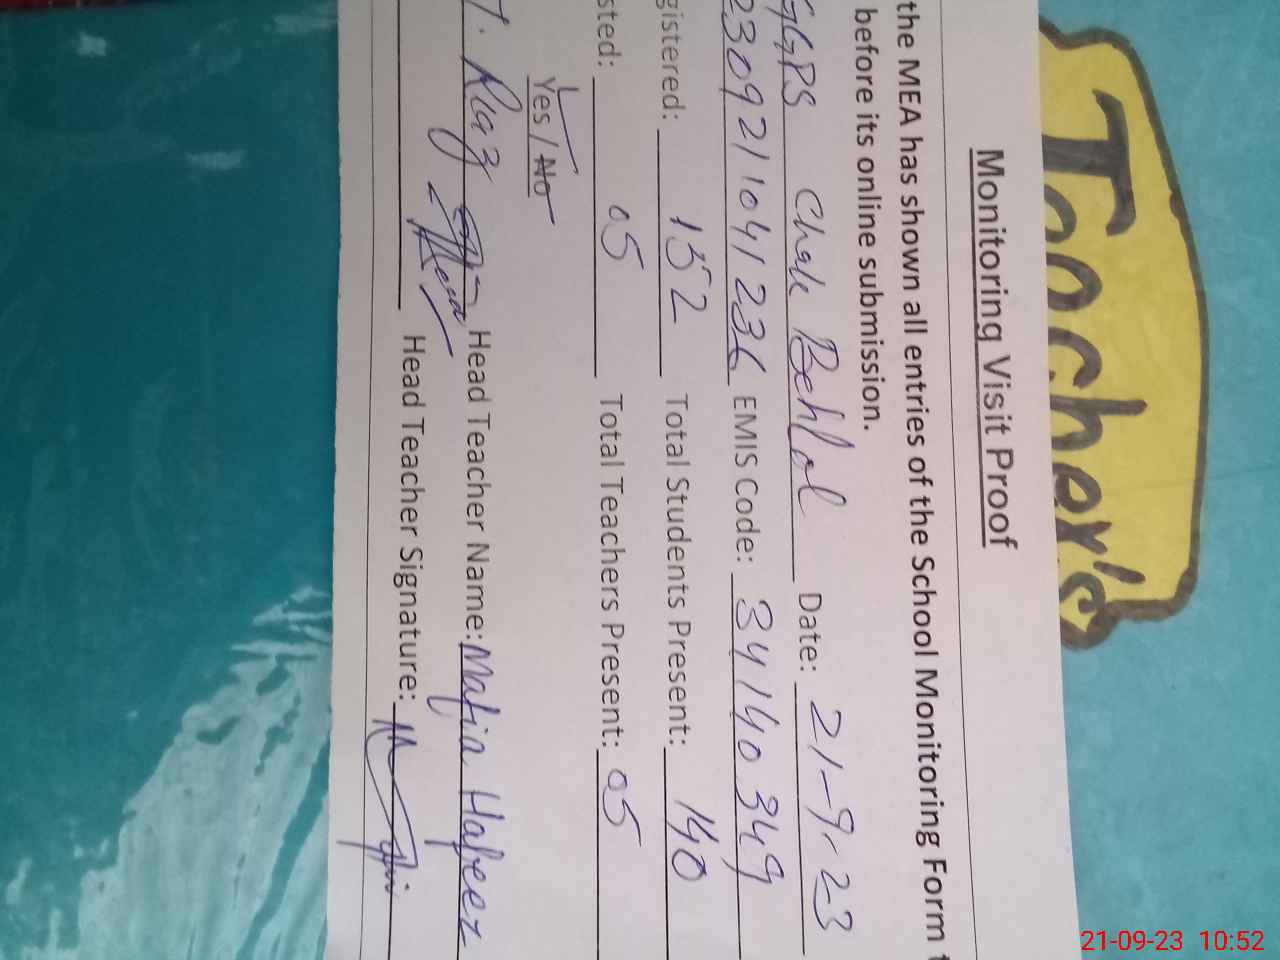 Teacher's
Monitoring Visit Proof
the MEA has shown all entries of the School Monitoring Form t
before its online submission.
GGPS Chak Behlol Date: 21-9-23
EMIS Code: 34140349
gistered: 152 Total Students Present: 140
sted: 05 Total Teachers Present: 05
Yes / No
Riaz Head Teacher Name: Mafia Hafeez
Head Teacher Signature:
21-09-23 10:52